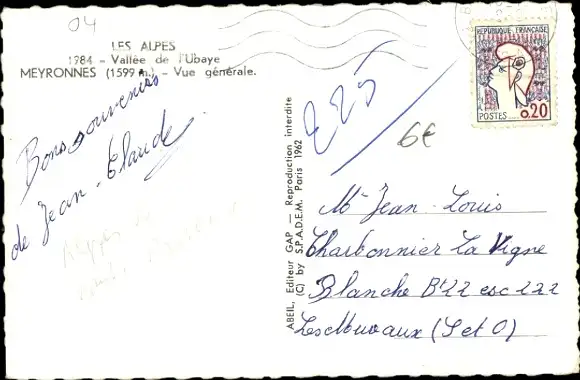 04
LES ALPES
1984 - Vallée de l'Ubaye
MEYRONNES (1599 m.) - Vue générale.
Bons souvenirs
de Jean-Claude
ABEIL, Editeur GAP — Reproduction interdite
(C) by S.P.A.D.E.M. Paris 1962
225
6€
REPUBLIQUE FRANÇAISE
POSTES 0,20
Mr Jean-Louis
Charbonnier La Vigne
Blanche Bt 22 esc 122
Les Mureaux (S et O)